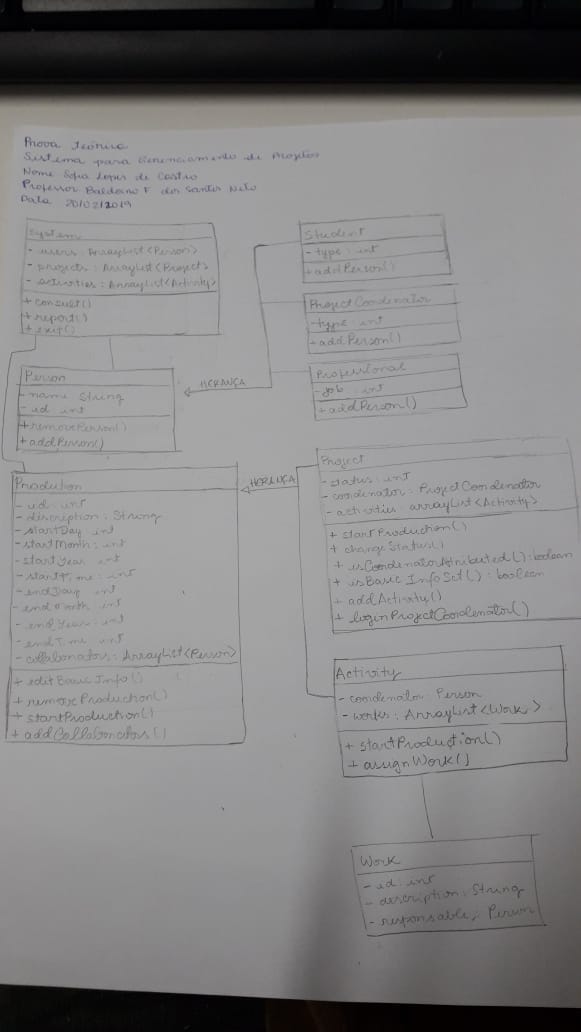 Prova teórica
Sistema para Gerenciamento de Projetos
Nome Sofia Lopes de Castro
Professor Baldoino F dos Santos Neto
Data 20/02/2019
System
- users: ArrayList<Person>
- projects: ArrayList<Project>
- activities: ArrayList<Activity>
+ consult()
+ report()
+ exit()
Student
- type: int
+ addPerson()
Project Coordenator
- type: int
+ addPerson()
Professional
- job: int
+ addPerson()
HERANÇA
Person
- name String
- id int
+ removePerson()
+ addPerson()
HERANÇA
Prodution
- id: int
- discription: String
- startDay int
- startMonth: int
- startYear int
- startTime: int
- endDay int
- endMonth int
- endYear: int
- endTime int
- collaborators: ArrayList<Person>
+ editBasicInfo()
+ removeProduction()
+ startProduction()
+ addCollaborators()
Project
- status: int
- coordenator: ProjectCoordenator
- activities: arrayList<Activity>
+ startProduction()
+ changeStatus()
+ isCoordenatorAtributed(): boolean
+ isBasicInfoSet(): boolean
+ addActivity()
+ loginProjectCoordenator()
Activity
- coordenator: Person
- works: ArrayList<Work>
+ startProduction()
+ assignWork()
Work
- id: int
- description: String
- responsable: Person